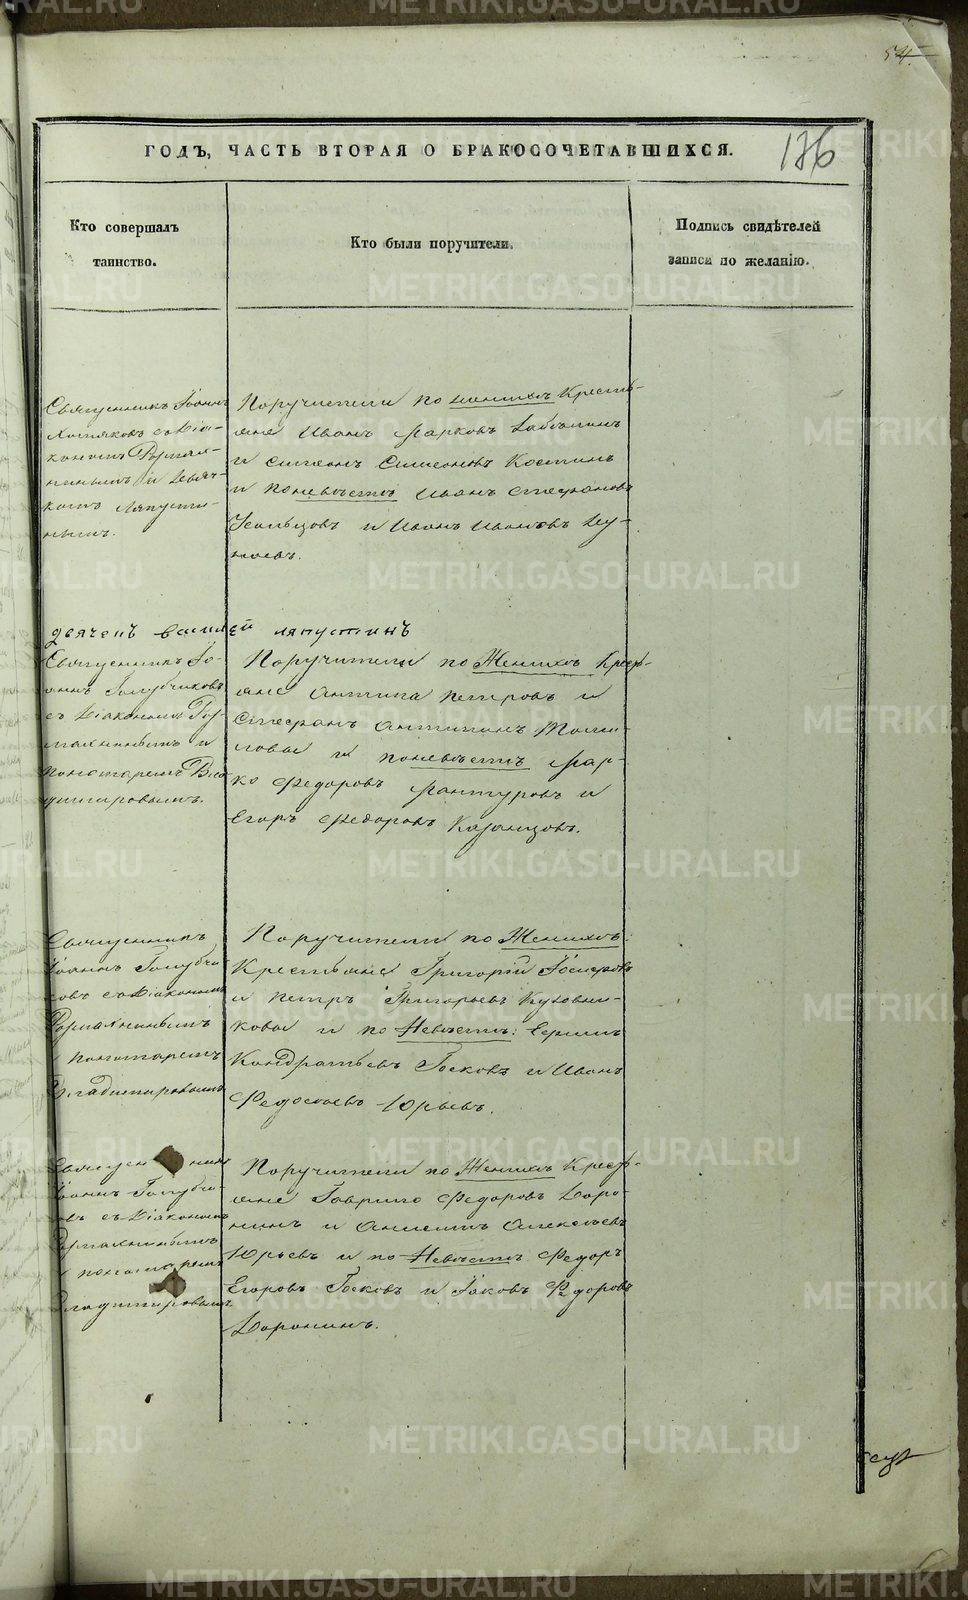 54.
ГОДЪ, ЧАСТЬ ВТОРАЯ О БРАКОСОЧЕТАВШИХСЯ.
136
Кто совершалъ
таинство.
Кто были поручители.
Подпись свидѣтелей
записи по желанію.
Священникъ Іоаннъ
Хомяковъ съ Діа-
кономъ
и Дьяч-
комъ Ляпусти-
нымъ.
Поручители по женихѣ Кресть-
яне Иванъ Марковъ
и Симеонъ Симеоновъ Костинъ
и по невѣстѣ Иванъ Стефановъ
Усольцовъ и Иванъ Ивановъ
дячекъ василей ляпустинъ
Священникъ Іо-
аннъ Голубчиковъ
съ Діакономъ
и
пономаремъ Вла-
димировымъ.
Поручители по Женихѣ Крест-
яне Антипа Петровъ и
Стефанъ Антипинъ
и по невѣстѣ Мар-
ко Федоровъ Мантуровъ и
Егоръ Федоровъ Казанцовъ.
Священникъ
Іоаннъ Голубчи-
ковъ съ Діакономъ
и пономаремъ
Владимировымъ
Поручители по Женихѣ:
Крестьяне Григорій Іосифовъ
и Петръ Григорьевъ Кутовни-
ковы и по Невѣстѣ: Ермилъ
Кондратьевъ Госковъ и Иванъ
Федосѣевъ Юрьевъ.
Священникъ
Іоаннъ Голубчи-
ковъ съ Діакономъ
и пономаремъ
Владимировымъ
Поручители по Женихѣ Крест-
яне Гаврило Федоровъ Доро-
нинъ и Алексѣевъ
Юрьевъ и по Невѣстѣ Федоръ
Егоровъ Госковъ и Іаковъ Федоровъ
Доронинъ.
METRIKI.GASO-URAL.RU